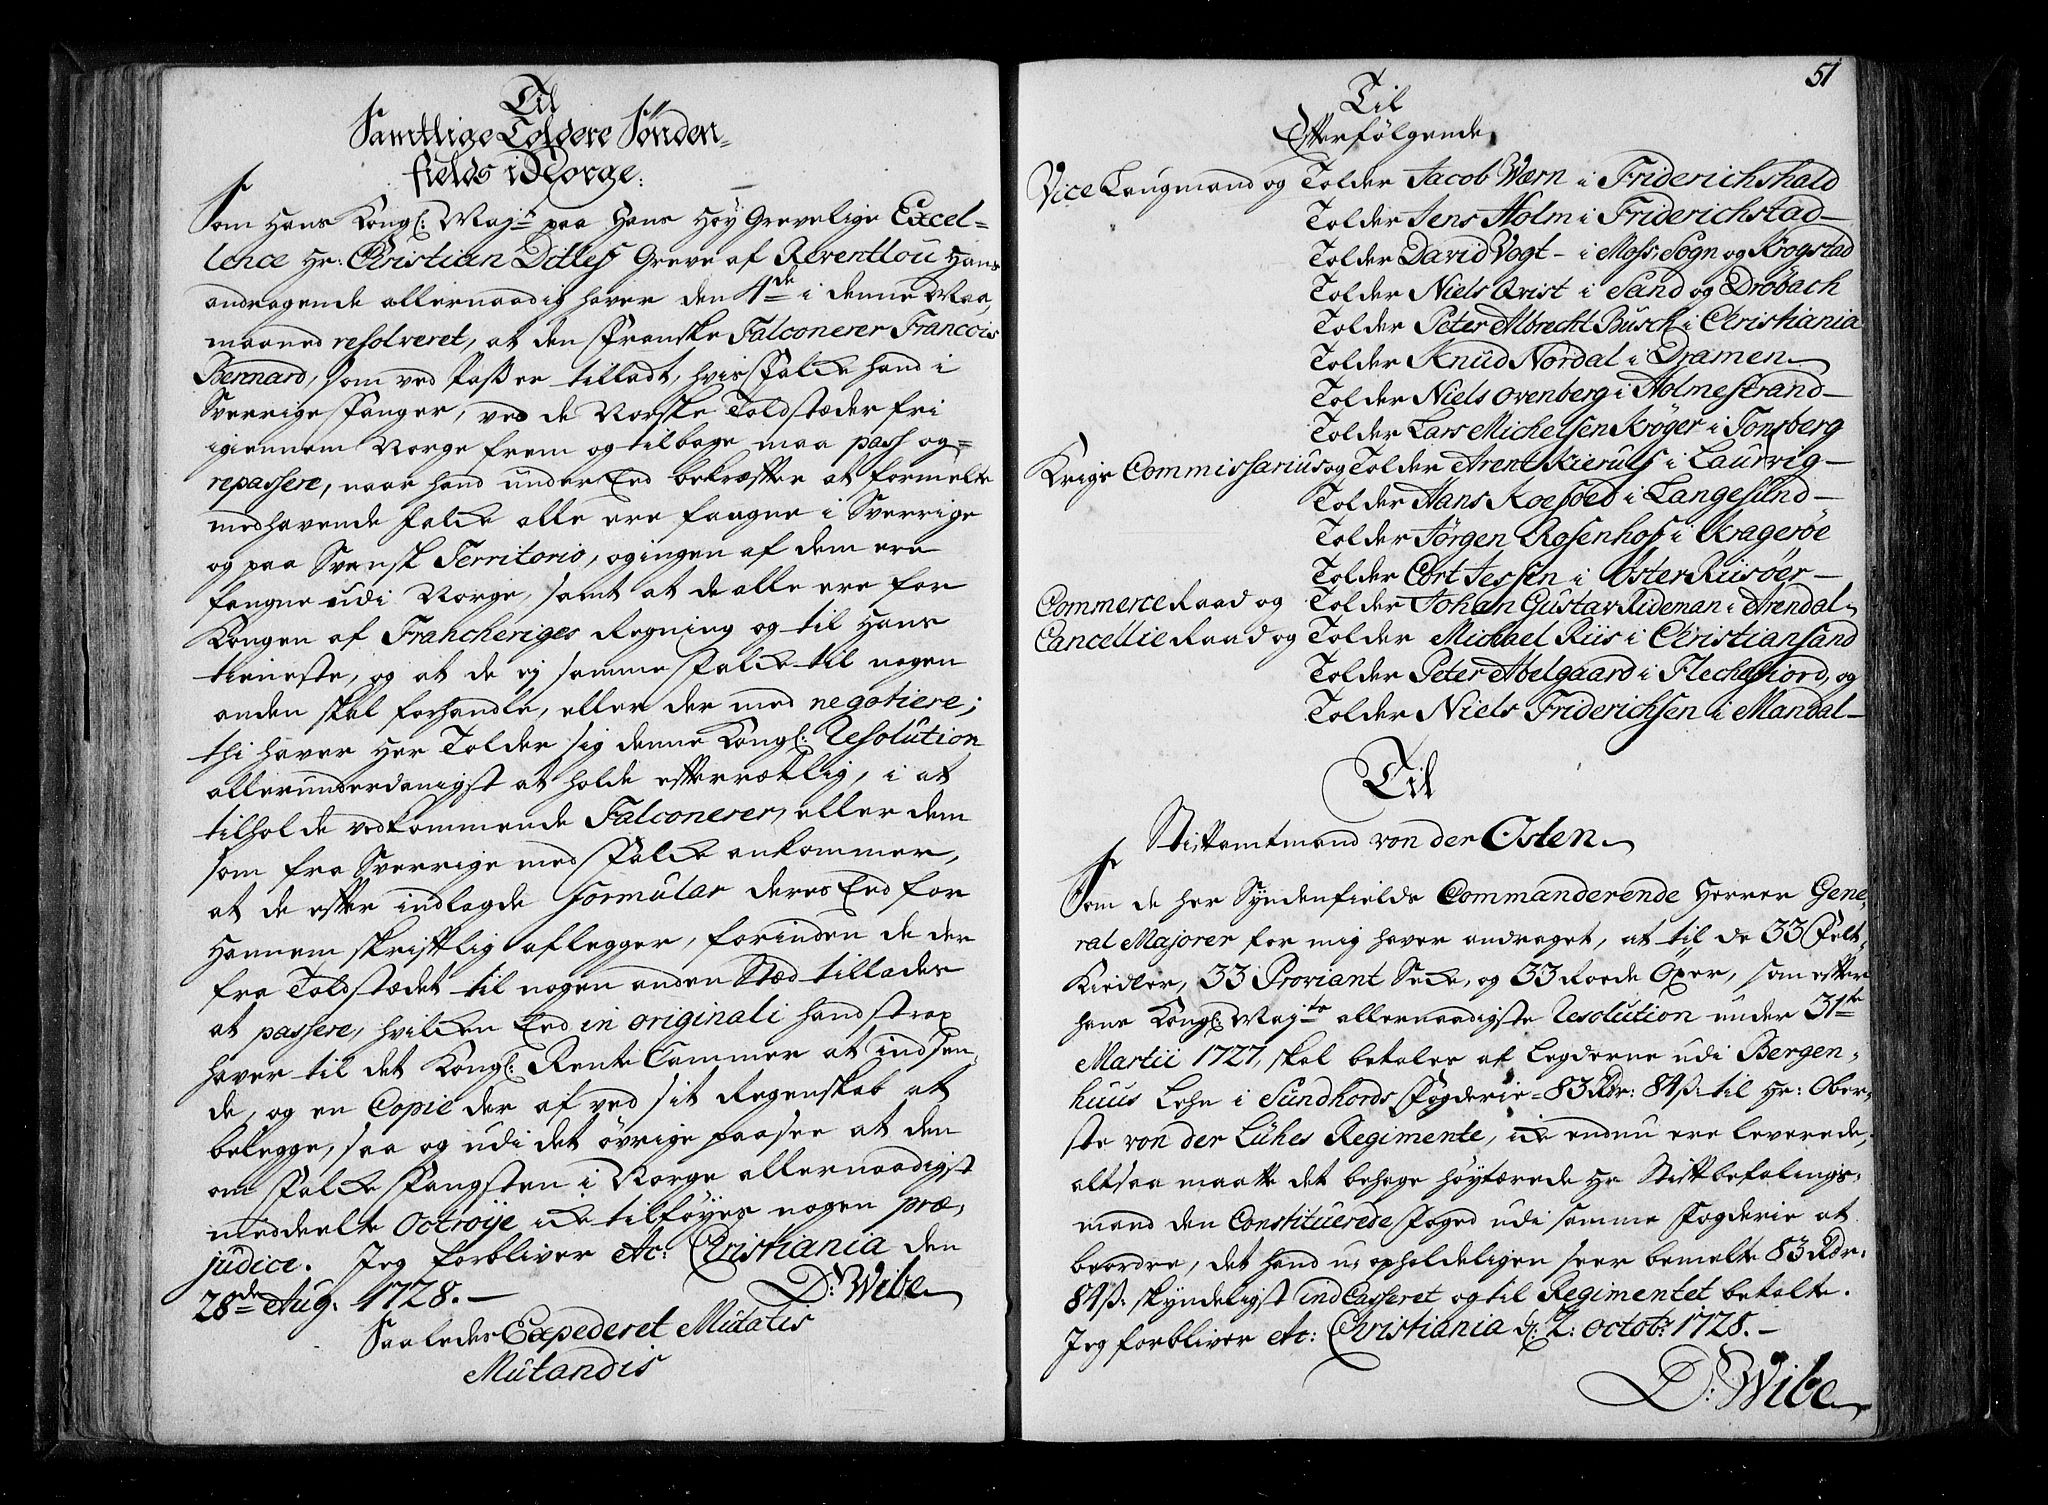 Til
Samtlige Toldere Sønden-
fields i Norge:
Som Hans Kongl: Majts paa Hans Høy Grevelige Excel-
lence Hr: Christian Ditlef Greve af Reventlou Hans
andragende allernaadig haver den 4de i denne Maa,
maaned resolveret, at den Franske Falconerer Francois
Bernard, som ved Pass er tilladt, hvis Falke hand i
Sverrige Fanger, ved de Norske Toldstæder fri
igiennem Norge frem og tilbage maa pass og=
repassere, naar hand under Eed bekræfter at formelte
medhavende Falke alle ere fangne i Sverrige
og paa Svensk Territorio, og ingen af dem ere
fangne udi Norge, samt at de alle ere for
Kongen af Francheriges Regning og til Hans
tieneste, og at de ej samme Falke til nogen
anden skal forhandle, eller der med negotiere;
thi haver Her Tolder sig denne Kongl: Resolution
allerunderdanigst at holde efterrætlig, i at
tilholde vedkommende Falconerer, eller dem
som fra Sverrige med Falke ankommer,
at de efter indlagde Formular deres Eed for
Hannem skriftlig aflegger, forinden de der
fra Toldstædet til nogen anden Stæd tillades
at passere, hvilken Eed in originali hand strax
haver til det Kongl: Rente Cammer at indsen-
de, og en Copie der af ved sit Regenskab at
belegge, saa og udi det øvrige paasee at den
om Falke Fangsten i Norge allernaadigst
meddeelte Octroije ikke tilføyes nogen præ-
judice. Jeg forbliver etc: Christiania den
28de Aug: 1728.— D: Wibe
Saaledes Expederet Mutatis
Mutandis
51
Til
Efterfølgende
Vice Laugmand og Tolder Jacob Wærn i Friderichshald
Tolder Jens Holm i Friderichstad—
Tolder David Vogt - i Moss, Sogn og Krogstad
Tolder Niels Qvist i Sand og Drøbach
Tolder Peter Albrecht Busch i Christiania
Tolder Knud Nordal i Dramen
Tolder Niels Ovenberg i Holmestrand—
Tolder Lars Michelsen Krøger i Tonsberg
Krigs Commissarius og Tolder Arent Kierulf i Laurvig—
Tolder Hans Koefoed i Langesund—
Tolder Jørgen Rosenhof i Kragerøe
Tolder Cort Jessen i Øster Riisøer—
Commerce Raad og Tolder Johan Gustav Rideman i Arendal
Cancellie Raad og Tolder Michael Riis i Christiansand
Tolder Peter Abelgaard i Flechefiord, og
Tolder Niels Friderichsen i Mandal—
Til
Stiftamtmand von der Osten
Som de her Syndenfields Commanderende Herrer Gene-
ral Majorer for mig haver andraget, at til de 33 Felt-
Kiedler, 33 Proviant Seke, og 33 Roede Øxer, som efter
hans Kongl: Majts allernaadigste Resolution under 31te
Martii 1727, skal betales af Legderne udi Bergen-
huus Lehn i Sundhords Fogderie = 83 Rdr: 84 ß: til Hr: Ober-
ste von der Lühes Regimente, ike endnu ere leverede,
altsaa maatte det behage høytærede Hr Stiftbefalings-
mand den Constituerede Foged udi samme Fogderie at
beordre, det hand u-opholdeligen seer bemelte 83 Rdr:
84 ß: skyndeligst indCasseret og til Regimentet betalte.
Jeg forbliver etc: Christiania d: 2: Octobr: 1728.—
D: Wibe